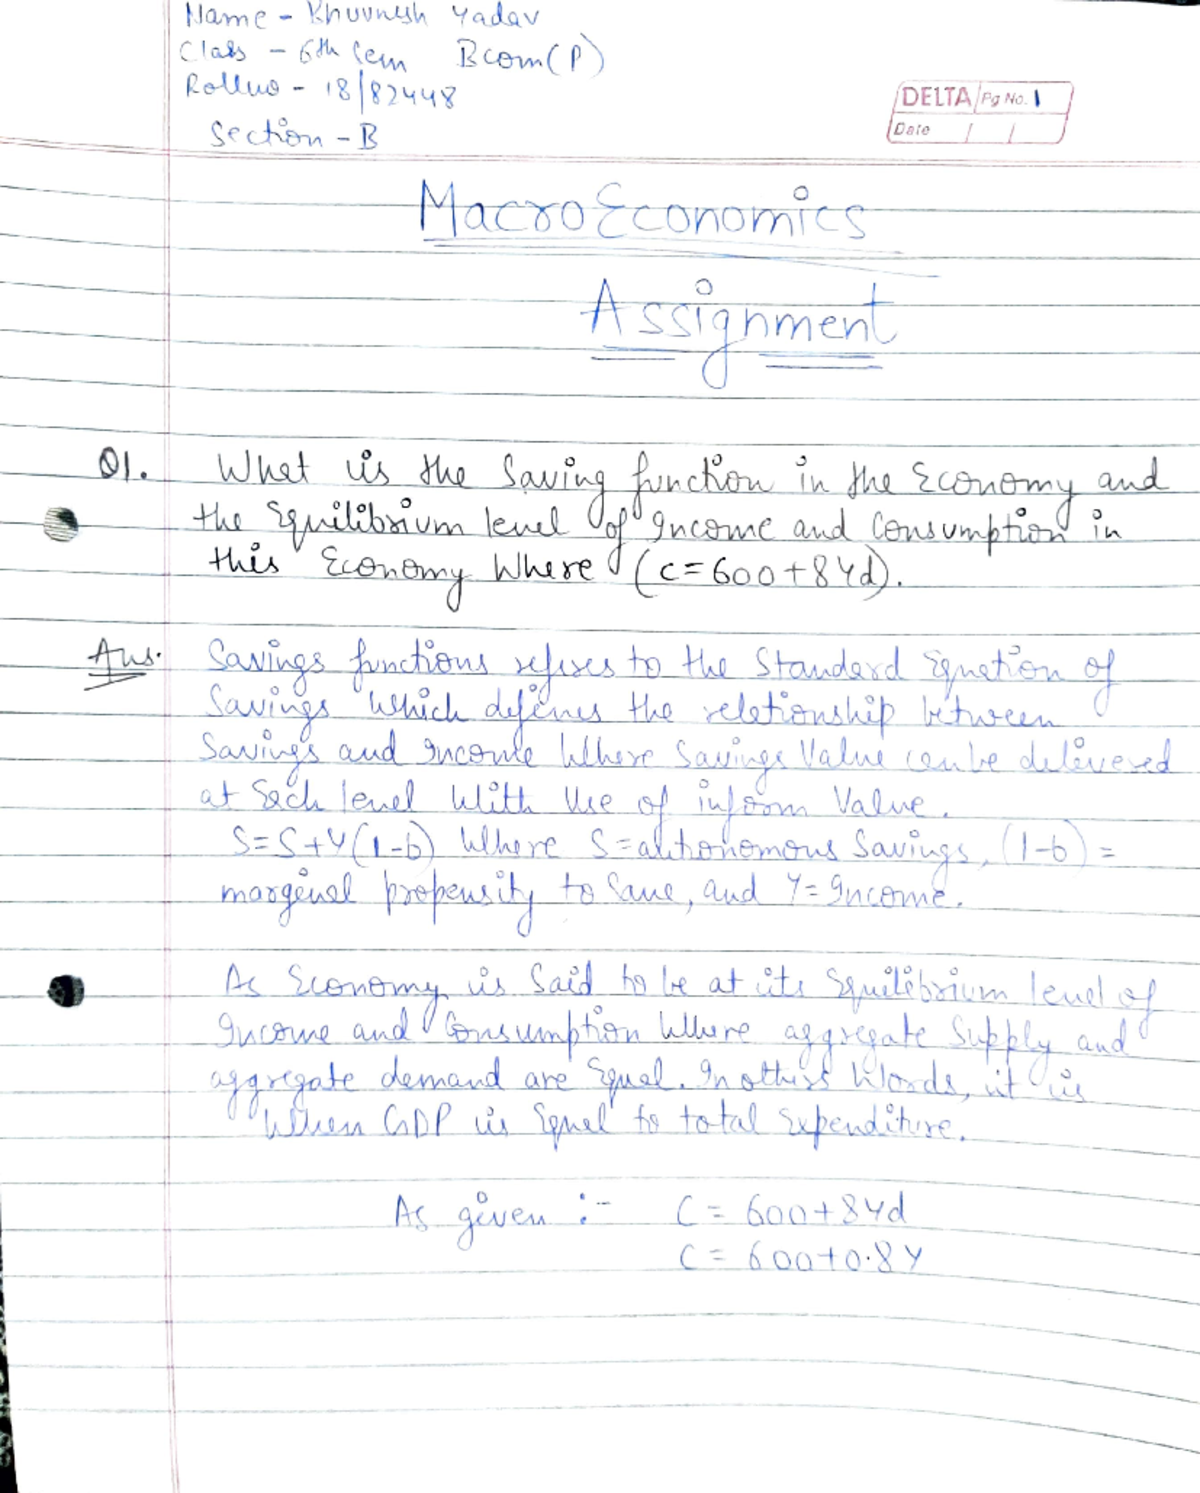 Name - Khuvnesh Yadav
Class - 6th Sem Bcom(P)
Rollno - 18/82448
Section - B
DELTA Pg No. 1
Date / /
MacroEconomics
Assignment
Q1. What is the Saving function in the Economy and
the Equilibrium level of Income and Consumption in
this Economy Where (C=600+8Yd).
Ans. Savings functions referes to the Standard Equation of
Savings Which defines the relationship between
Savings and Income Where Savings Value can be delievered
at Each level With Use of inform Value.
S=S+Y(1-b) Where S=autonomous Savings, (1-b) =
marginal propensity to Save, and Y=Income.
As Economy is Said to be at its Equilibrium level of
Income and Consumption Where aggregate Supply and
aggregate demand are Equal. In others Words, it is
When GDP is Equal to total Expenditure.
As given :- C = 600+8Yd
C = 600+0.8Y